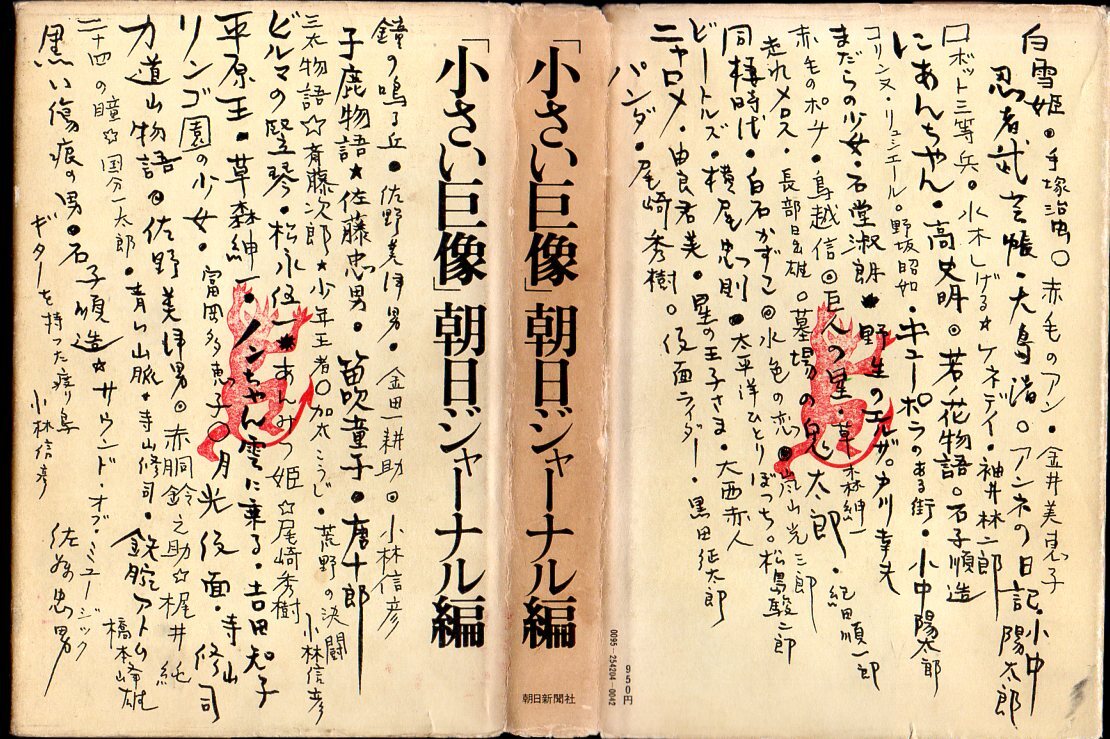 白雪姫・手塚治虫〇赤毛のアン・金井美恵子
忍者武芸帳・大島渚〇アンネの日記・小中陽太郎
ロボット三等兵◎水木しげる★ケネディ・袖井林二郎
にあんちゃん・高史明◎若ノ花物語〇石子順造
コリンヌ・リュシエール・野坂昭如・キューポラのある街・小中陽太郎
まだらの少女・石堂淑朗●野生のエルザ〇戸川幸夫
赤毛のポチ・鳥越信◎巨人の星・草森紳一
走れメロス・長部日出雄〇墓場の鬼太郎・紀田順一郎
同棲時代・白石かずこ◎水色の恋●嵐山光三郎
ビートルズ・横尾忠則●太平洋ひとりぼっち〇松島駿二郎
ニャロメ・由良君美・星の王子さま・大西赤人
パンダ・尾崎秀樹〇仮面ライダー・黒田征太郎
950円
0095-254204-0042
「小さい巨像」朝日ジャーナル編
朝日新聞社
「小さい巨像」朝日ジャーナル編
鐘の鳴る丘・佐野美津男・金田一耕助◎小林信彦
子鹿物語★佐藤忠男・笛吹童子・唐十郎
三太物語☆斎藤次郎★少年王者〇加太こうじ・荒野の決闘・小林信彦
ビルマの竪琴・松永伍一●あんみつ姫☆尾崎秀樹
平原王・草森紳一・ノンちゃん雲に乗る・吉田知子
リンゴ園の少女・富岡多恵子〇月光仮面・寺山修司
力道山物語◎佐野美津男◎赤胴鈴之助☆梶井純
二十四の瞳☆国分一太郎・青い山脈・寺山修司・鉄腕アトム・橋本峰雄
黒い傷痕の男◎石子順造★サウンド・オブ・ミュージック・佐藤忠男
ギターを持った渡り鳥・小林信彦